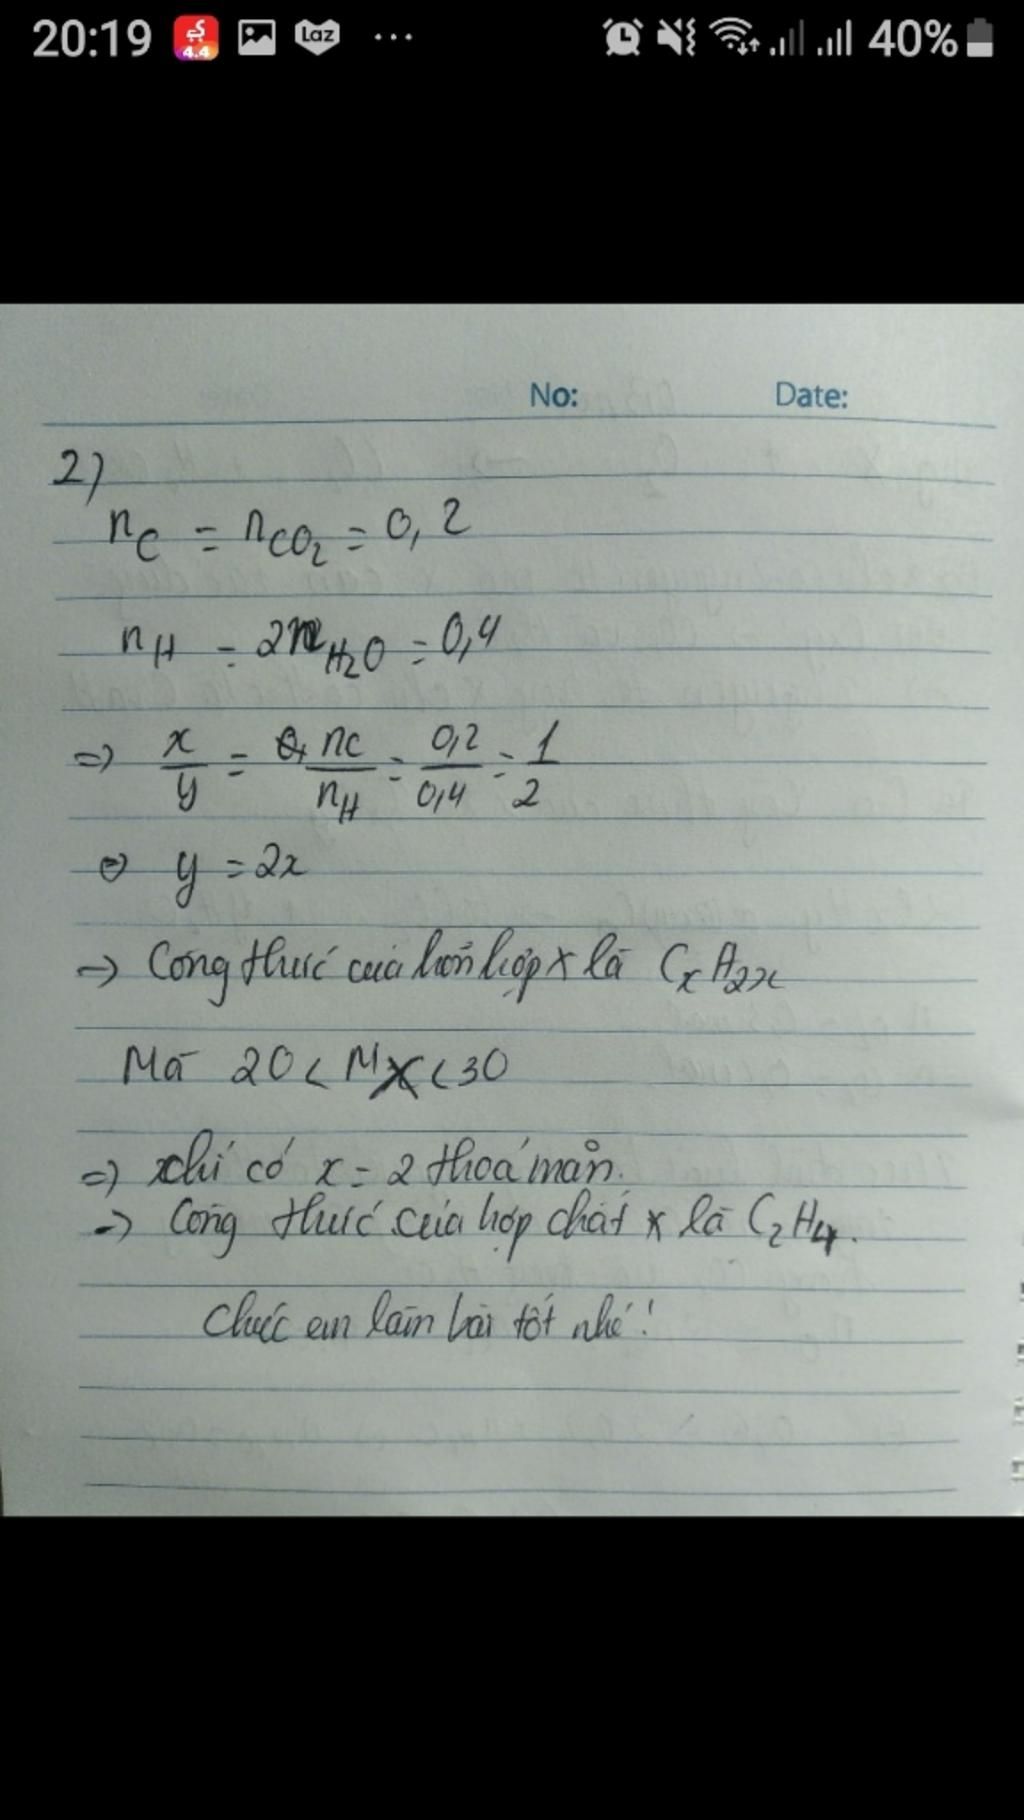 20:19 4.4 Laz ... 40%
No: Date:
2)
nC = nCO2 = 0,2
nH = 2nH2O = 0,4
=> x/y = nC/nH = 0,2/0,4 = 1/2
<=> y = 2x
=> Công thức của hỗn hợp X là CxH2x
Mà 20 < MX < 30
=> chỉ có x = 2 thoả mãn.
=> Công thức của hợp chất X là C2H4.
Chúc em làm bài tốt nhé!